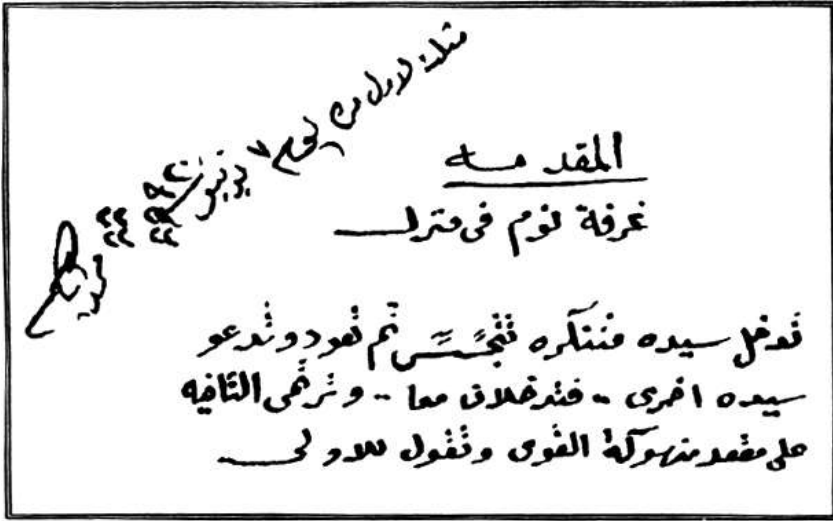 مثلت لاول مره يوم ٧ يونيو
المقدمه
غرفة نوم في منزل
تدخل سيده متنكره تتجسس ثم تعود وتدعو
سيده اخرى .. فتدخلان معا .. وترتمى الثانيه
على مقعد منهوكة القوى وتقول للاولى